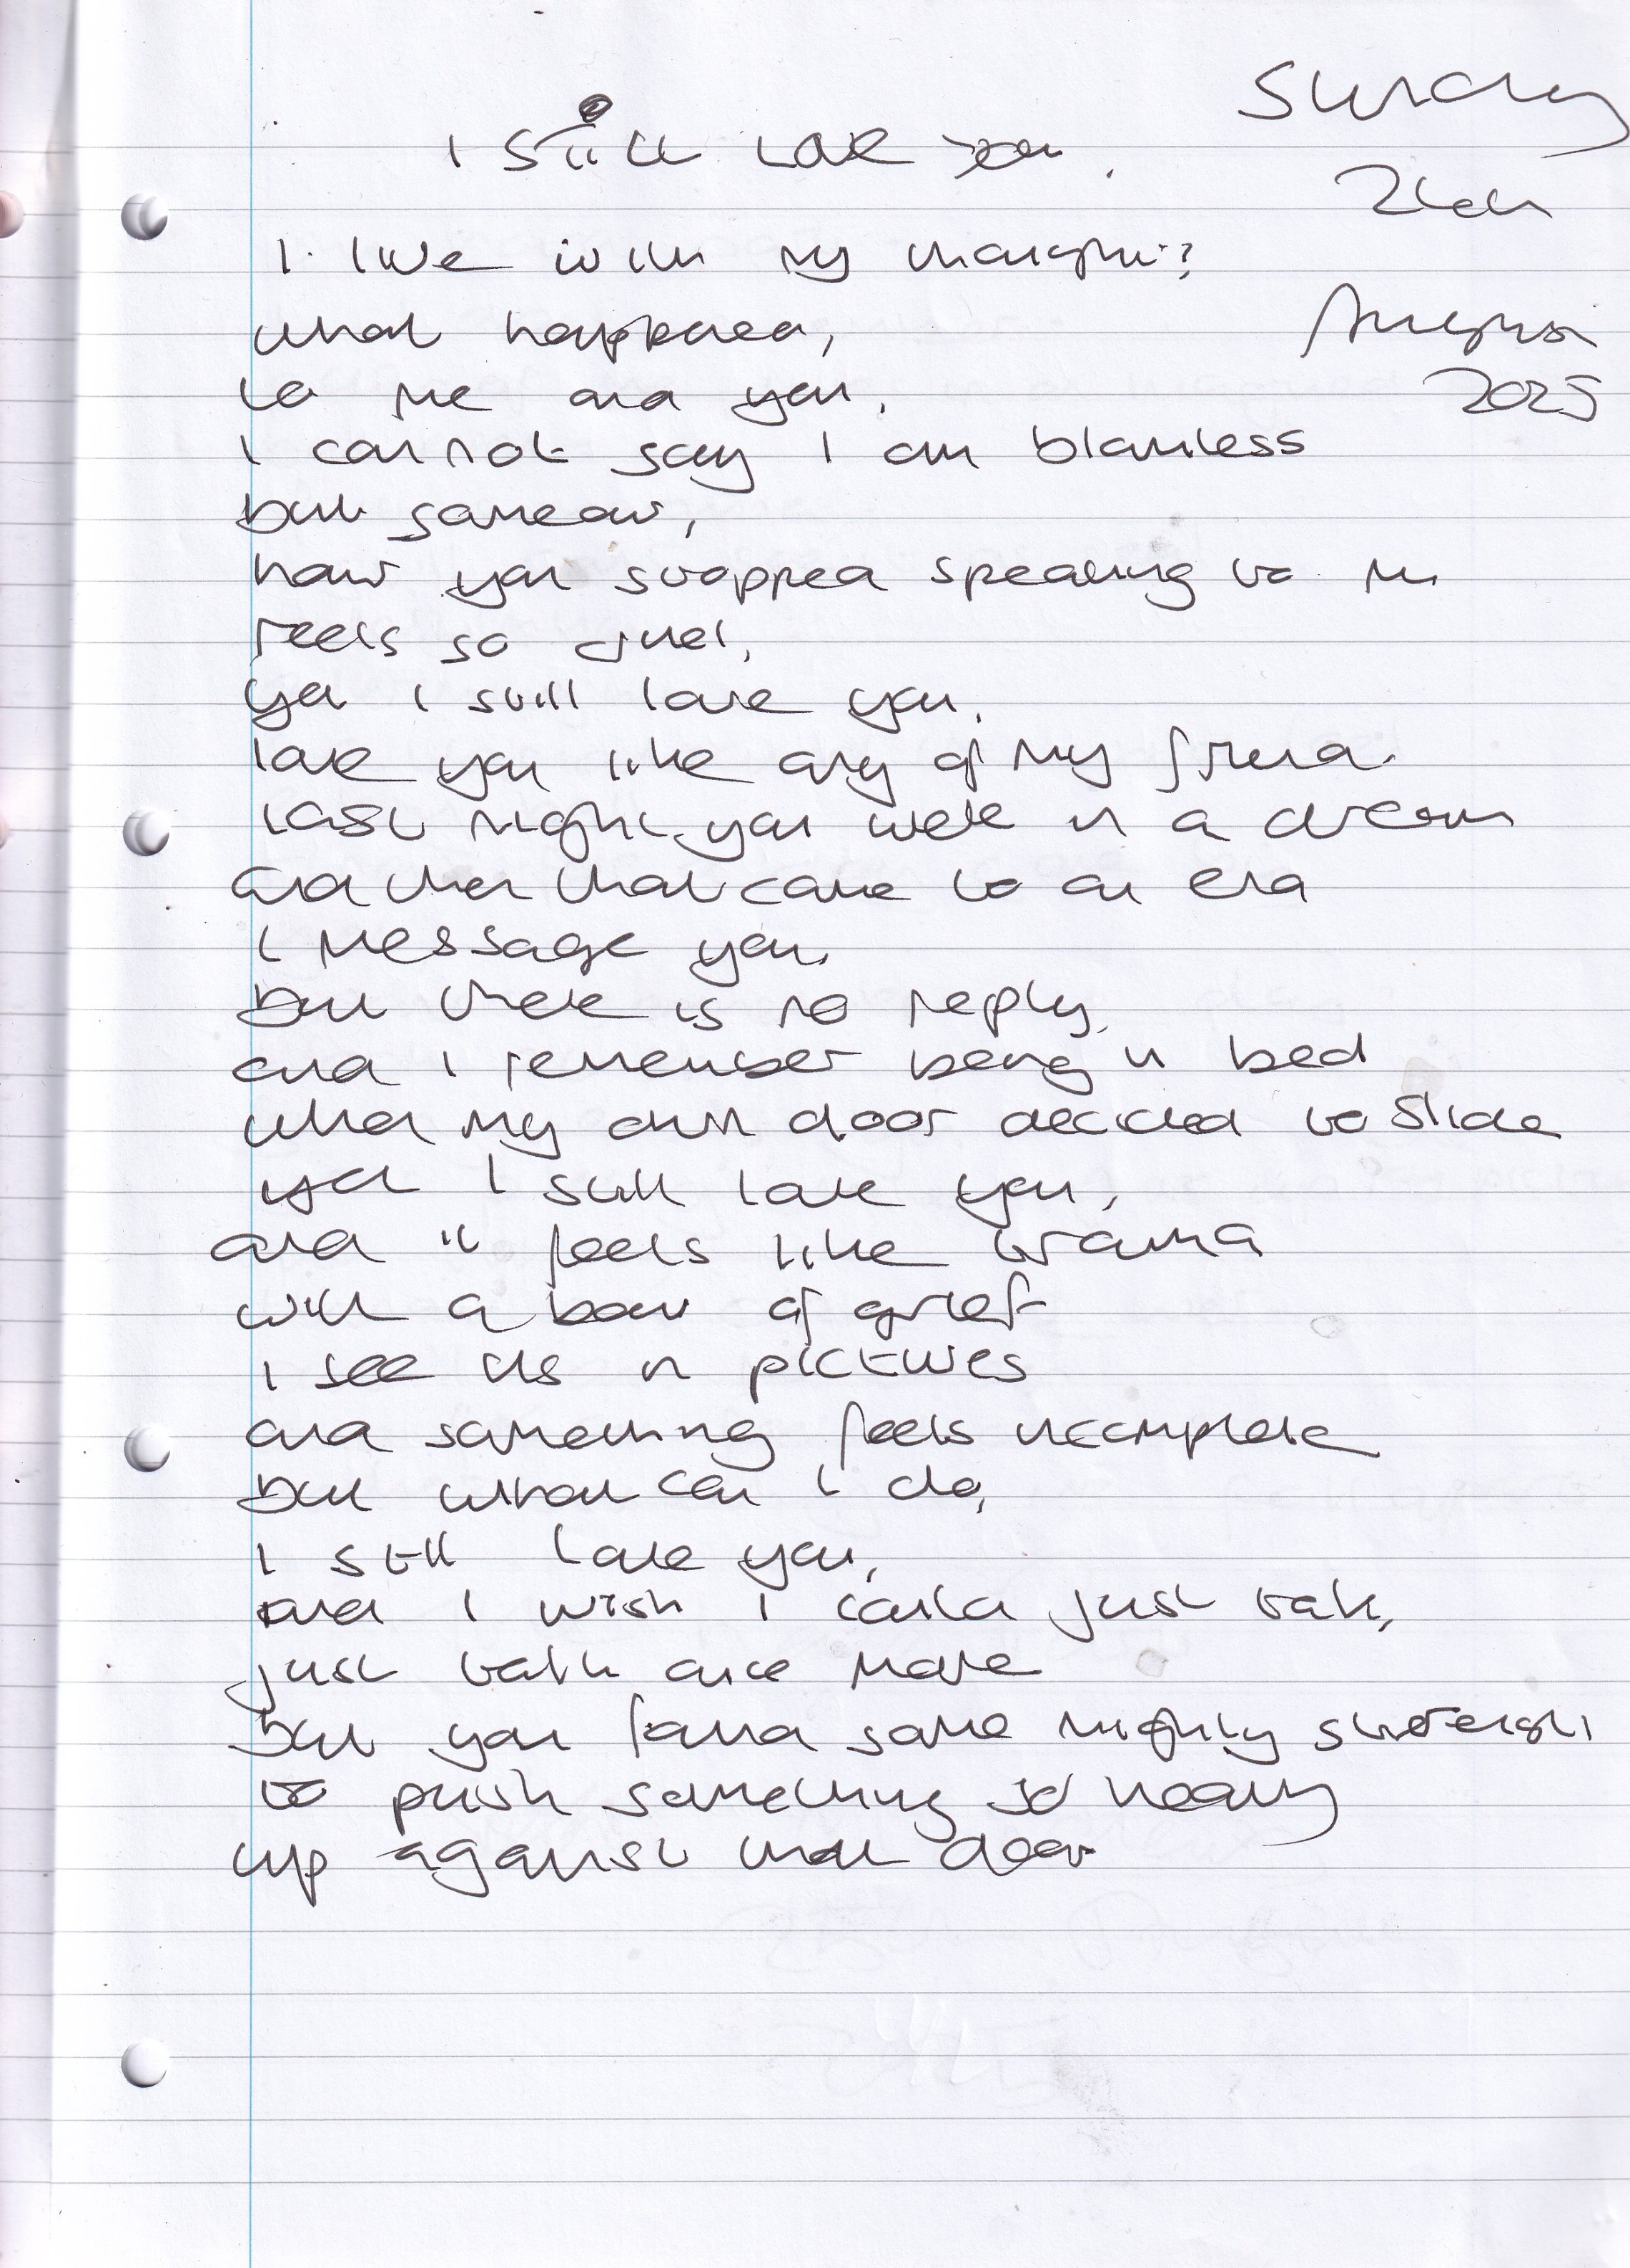 Sunday
I still love you.
24th
I live with my thoughts?
August
what happened,
2025
to me and you,
I cannot say I am blameless
but someow,
how you stopped speaking to me
feels so cruel,
yet I still love you,
love you like any of my friend
last night you were in a dream
and when that came to an end
I message you,
but there is no reply,
and I remember being in bed
when my own door decided to slide
yet I still love you,
and it feels like trauma
with a bow of grief
I see us in pictures
and something feels incomplete
but what can I do,
I still love you,
and I wish I could just talk,
just talk once more
but you found some mighty strength
to push something so heavy
up against that door